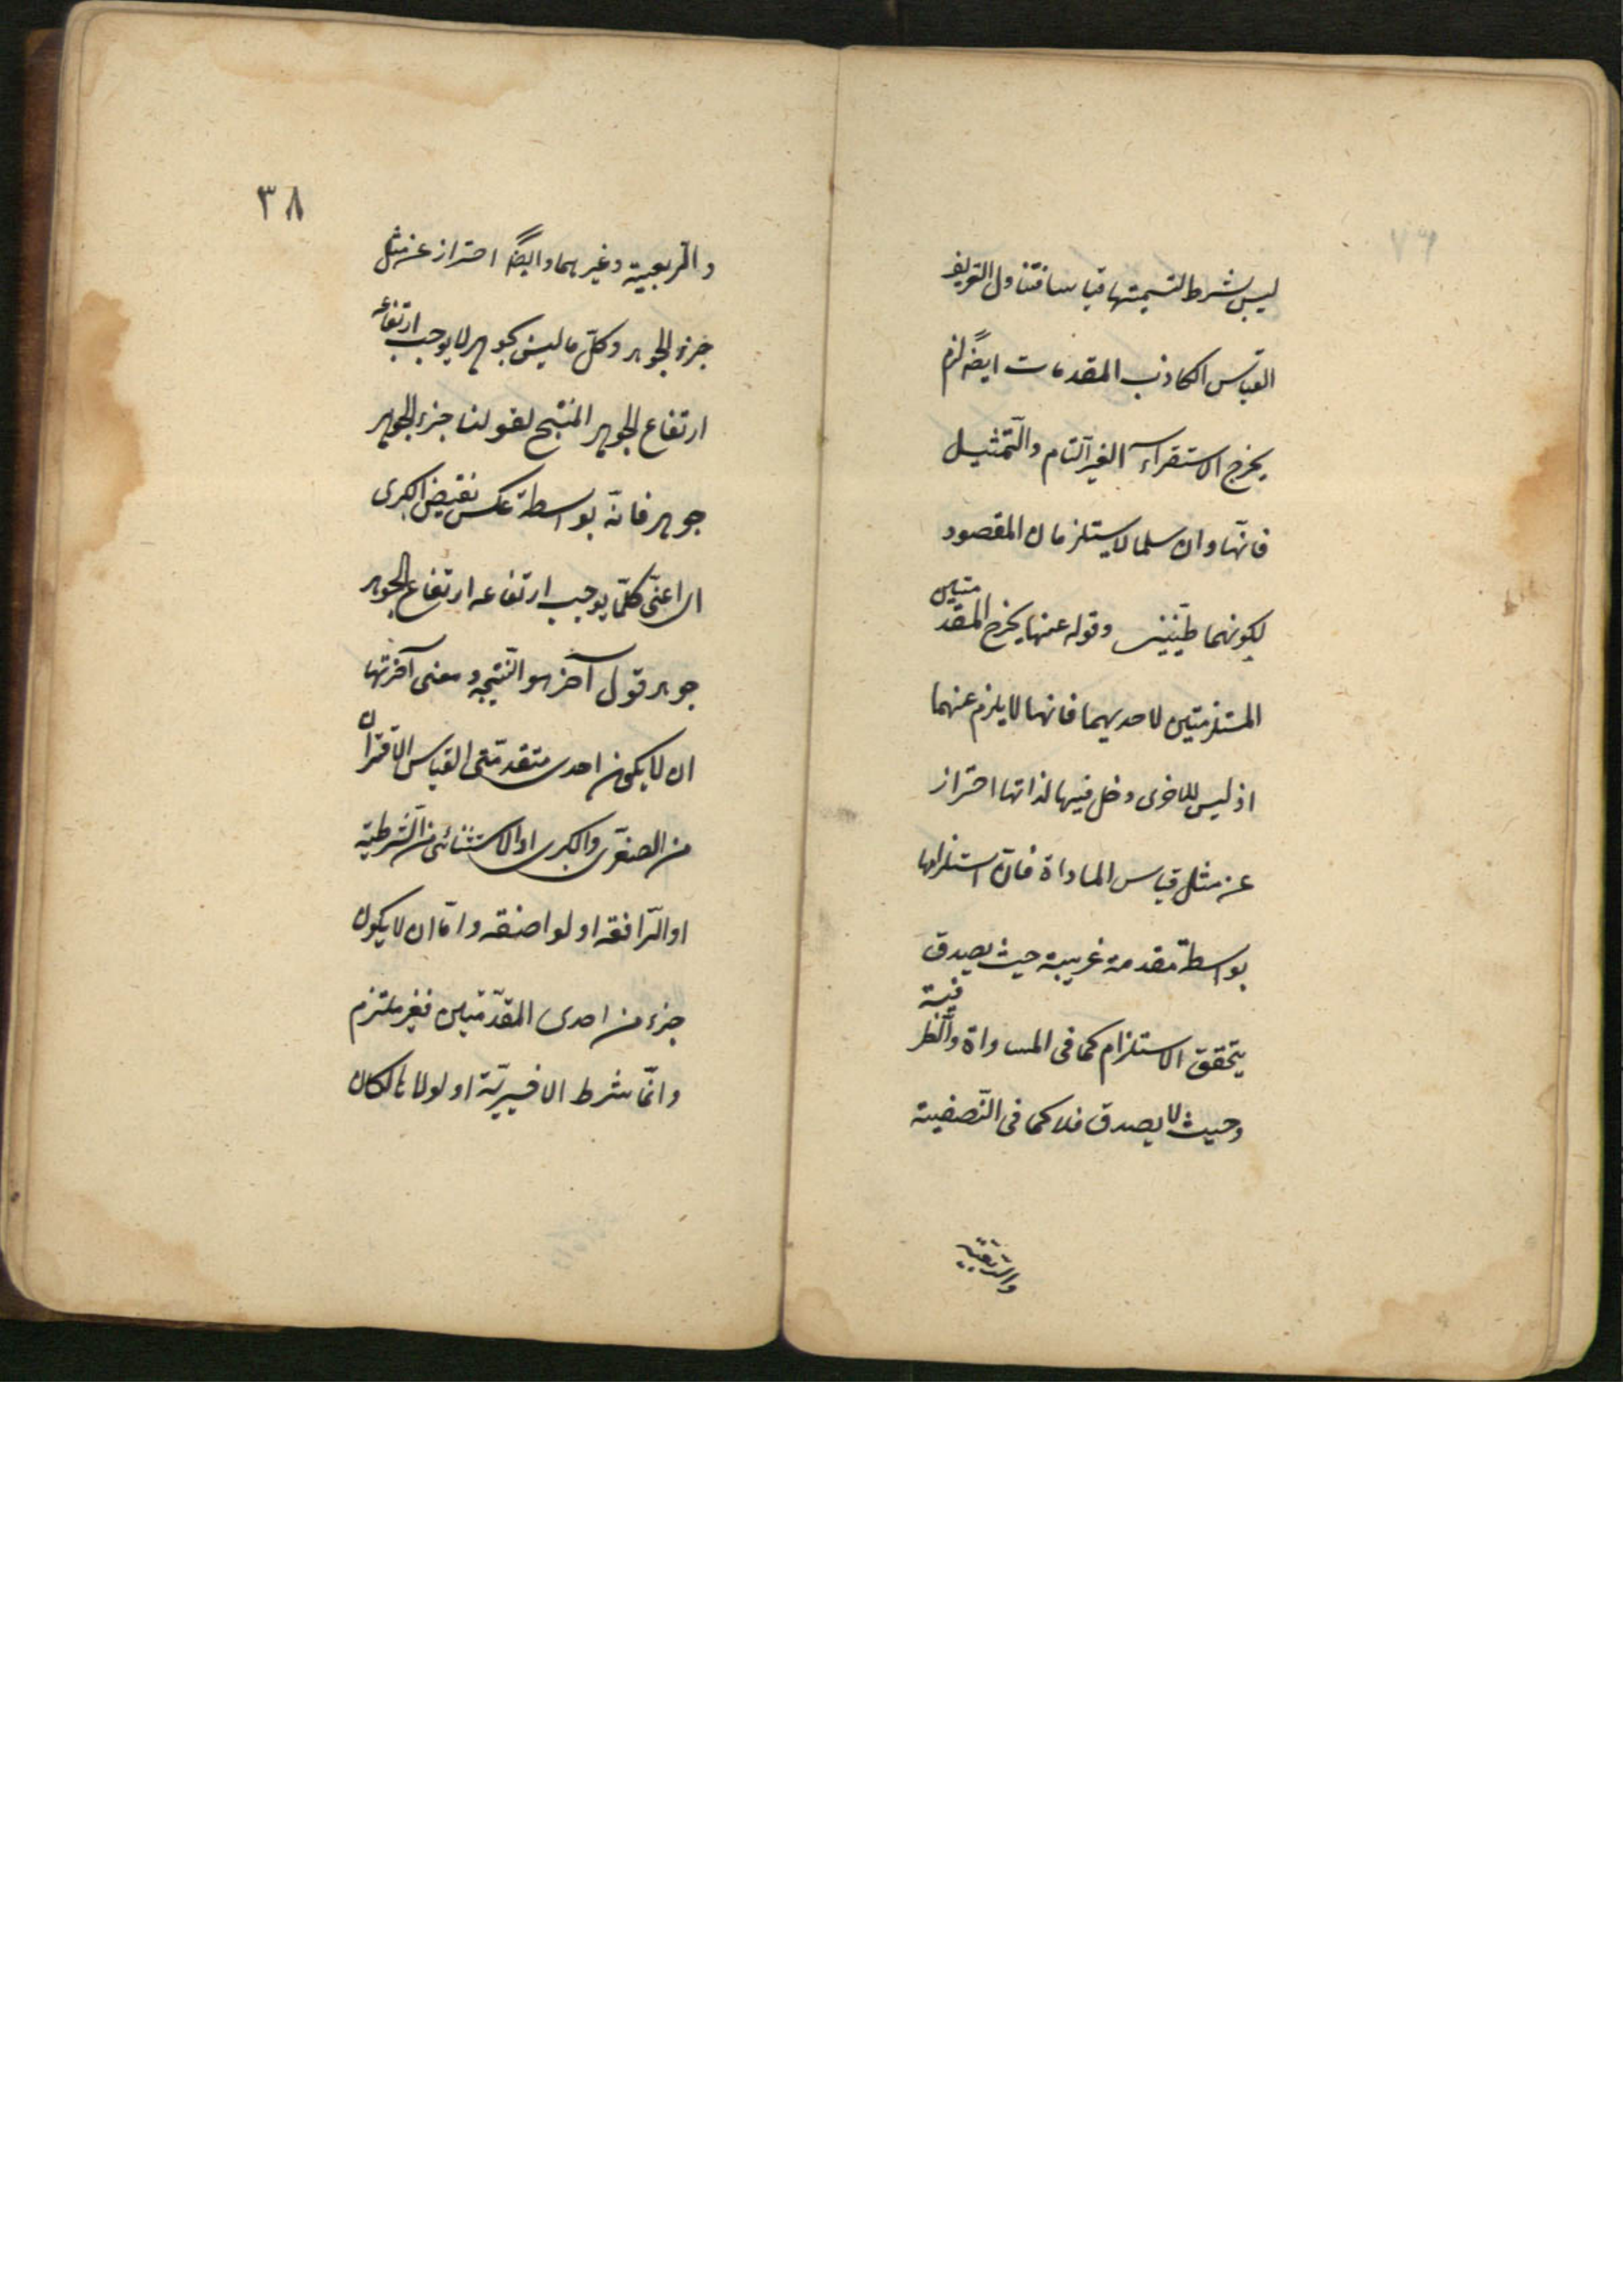 ٧٦
ليس شرط لتسميتها قياسا فتناول التعريف
القياس الكاذب المقدمات ايضاً لزم
يخرج الاستقراء الغير التام والتمثيل
فانّهما وان سلما لا يستلزمان المقصود
لكونهما ظنيين وقوله عنها يخرج المقدمتين
المستلزمتين لاحديهما فانها لا يلزم عنهما
اذ ليس للاخرى دخل فيها لذاتها احتراز
عن مثل قياس المساواة فان استلزامها
بواسطة مقدمة غريبة حيث يصدق
يتحقق الاستلزام كما فى المساواة والظرفية
وحيث لا يصدق فلا كما فى النّصفية
٣٨
والربعية وغيرهما وايضاً احتراز عن مثل
جزء الجوهر وكلّ ما ليس بجوهر لا يوجب ارتفاعه
ارتفاع الجوهر المنتج لقولنا جزء الجوهر
جوهر فانّه بواسطة عكس نقيض الكبرى
اعنى كلّما يوجب ارتفاعه ارتفاع الجوهر
جوهر قول آخر هو النّتيجه ومعنى آخريّتها
ان لا يكون احدى مقدمتى القياس الاقترانى
من الصغرى والكبرى او الاستثنائى من الشّرطية
او الرّافعه او لواضعه وامّا ان لا يكون
جزء من احدى المقدّمتين فغير ملتزم
وانّما شرط الاخيريّة اذ لولاها لكان